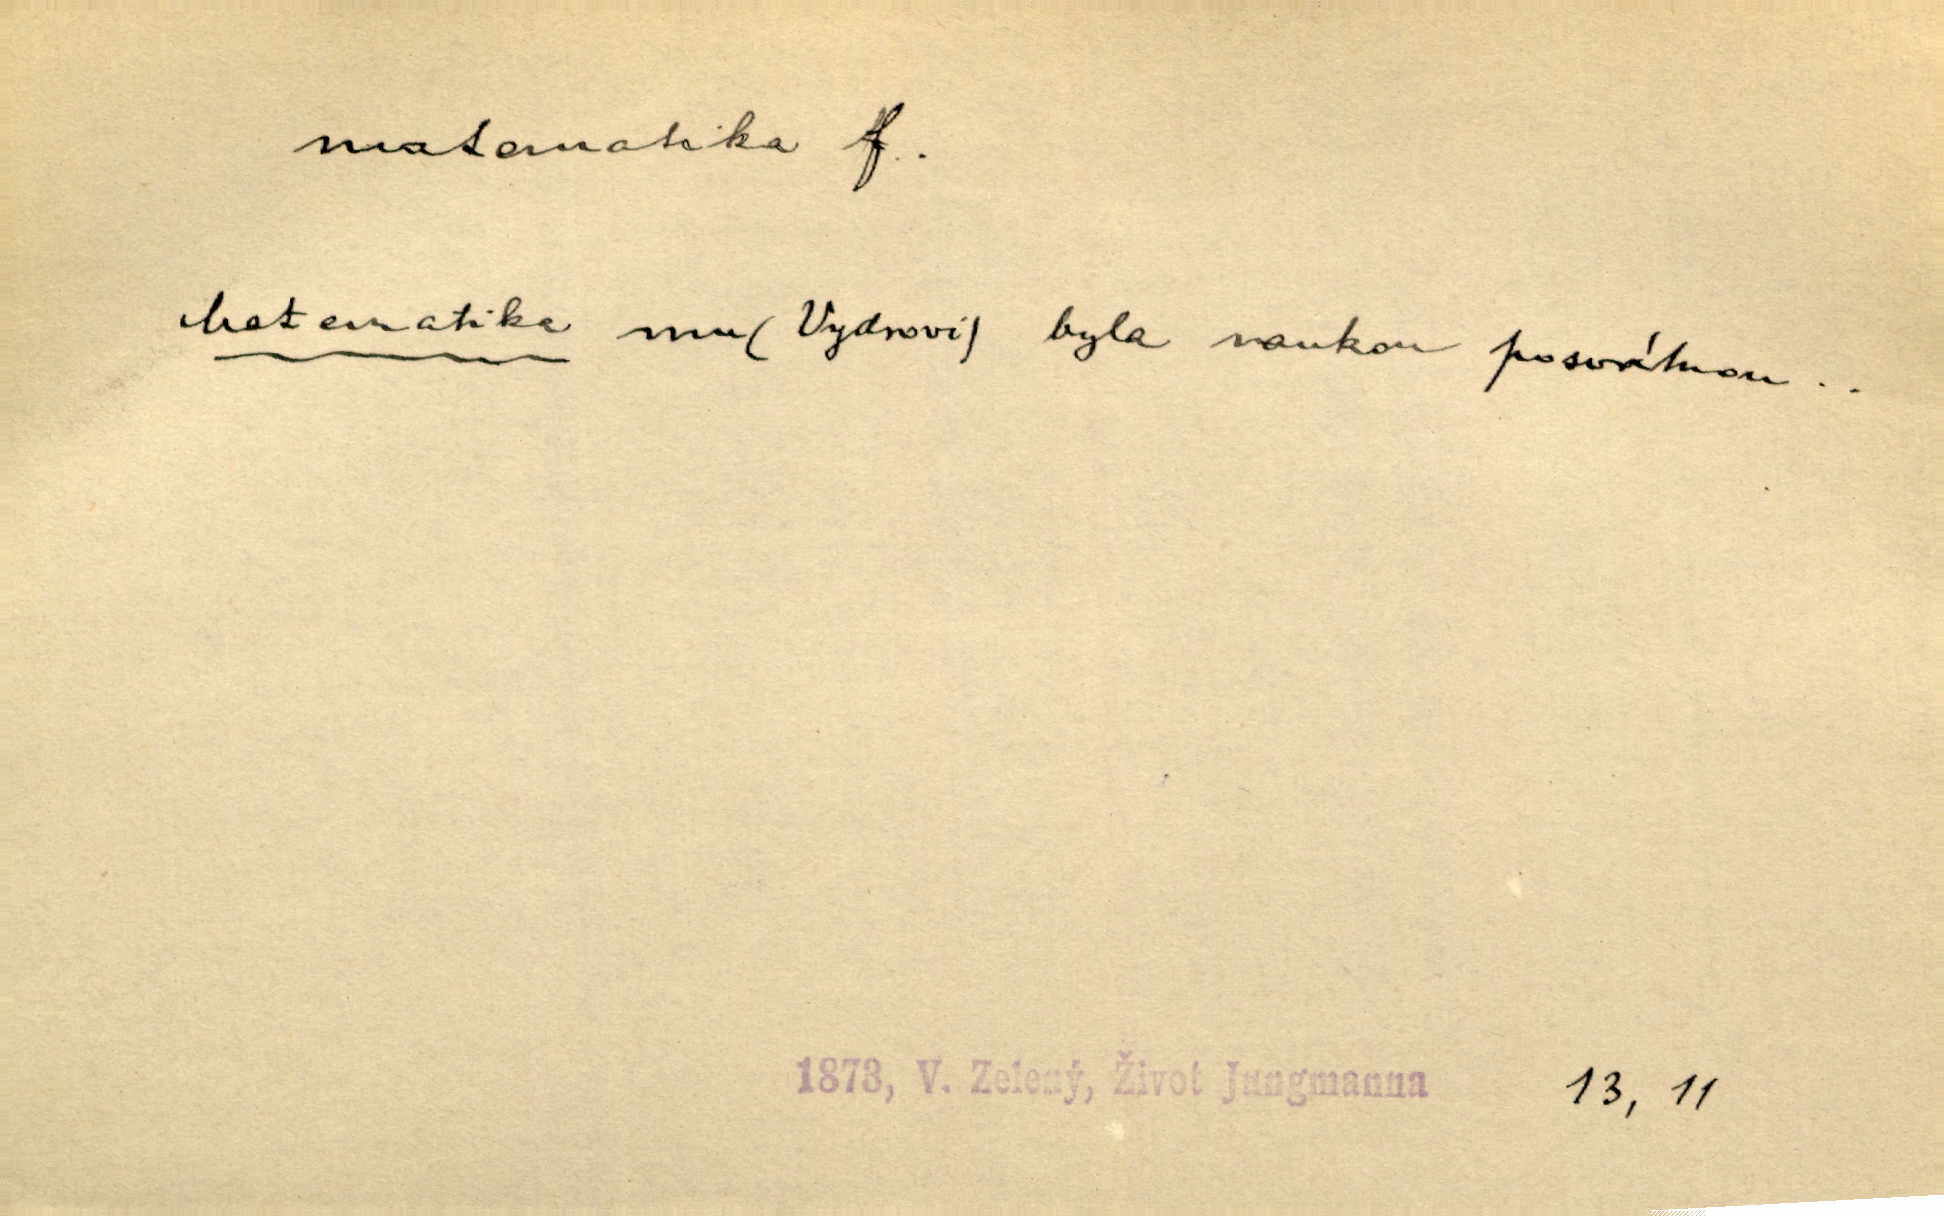 matematika f..
Matematika mu (Vydrovi) byla naukou posvátnou ..
1873, V. Zelený, Život Jungmanna 13, 11